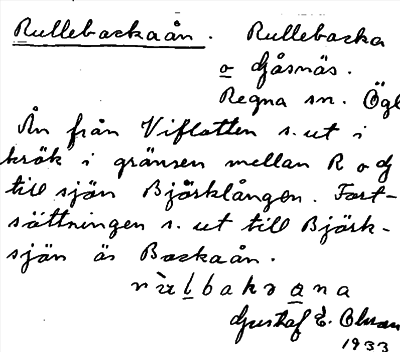 Rullebackaån. Rullebacka
o Gåsnäs.
Regna sn. Ögl
Ån från Viflotten s. ut i
krök i gränsen mellan R o G
till sjön Björklången. Fort-
sättningen s. ut till Björk-
sjön är Backaån.
Gustaf E. Olsson
1933